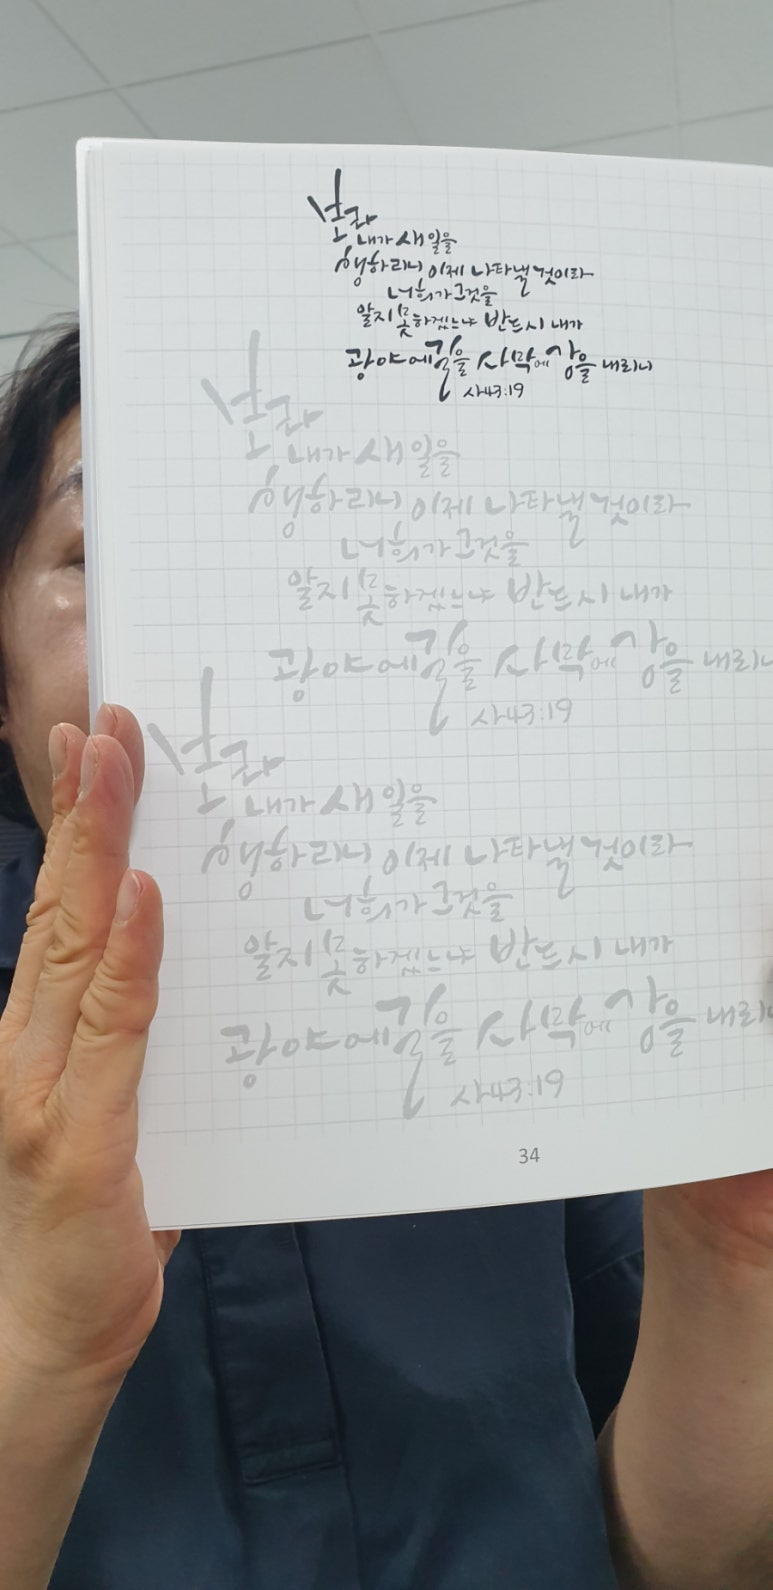 보라
내가 새 일을
행하리니 이제 나타낼 것이라
너희가 그것을
알지 못하겠느냐 반드시 내가
광야에 길을 사막에 강을 내리니
사43:19
보라
내가 새 일을
행하리니 이제 나타낼 것이라
너희가 그것을
알지 못하겠느냐 반드시 내가
광야에 길을 사막에 강을 내리니
사43:19
보라
내가 새 일을
행하리니 이제 나타낼 것이라
너희가 그것을
알지 못하겠느냐 반드시 내가
광야에 길을 사막에 강을 내리니
사43:19
34